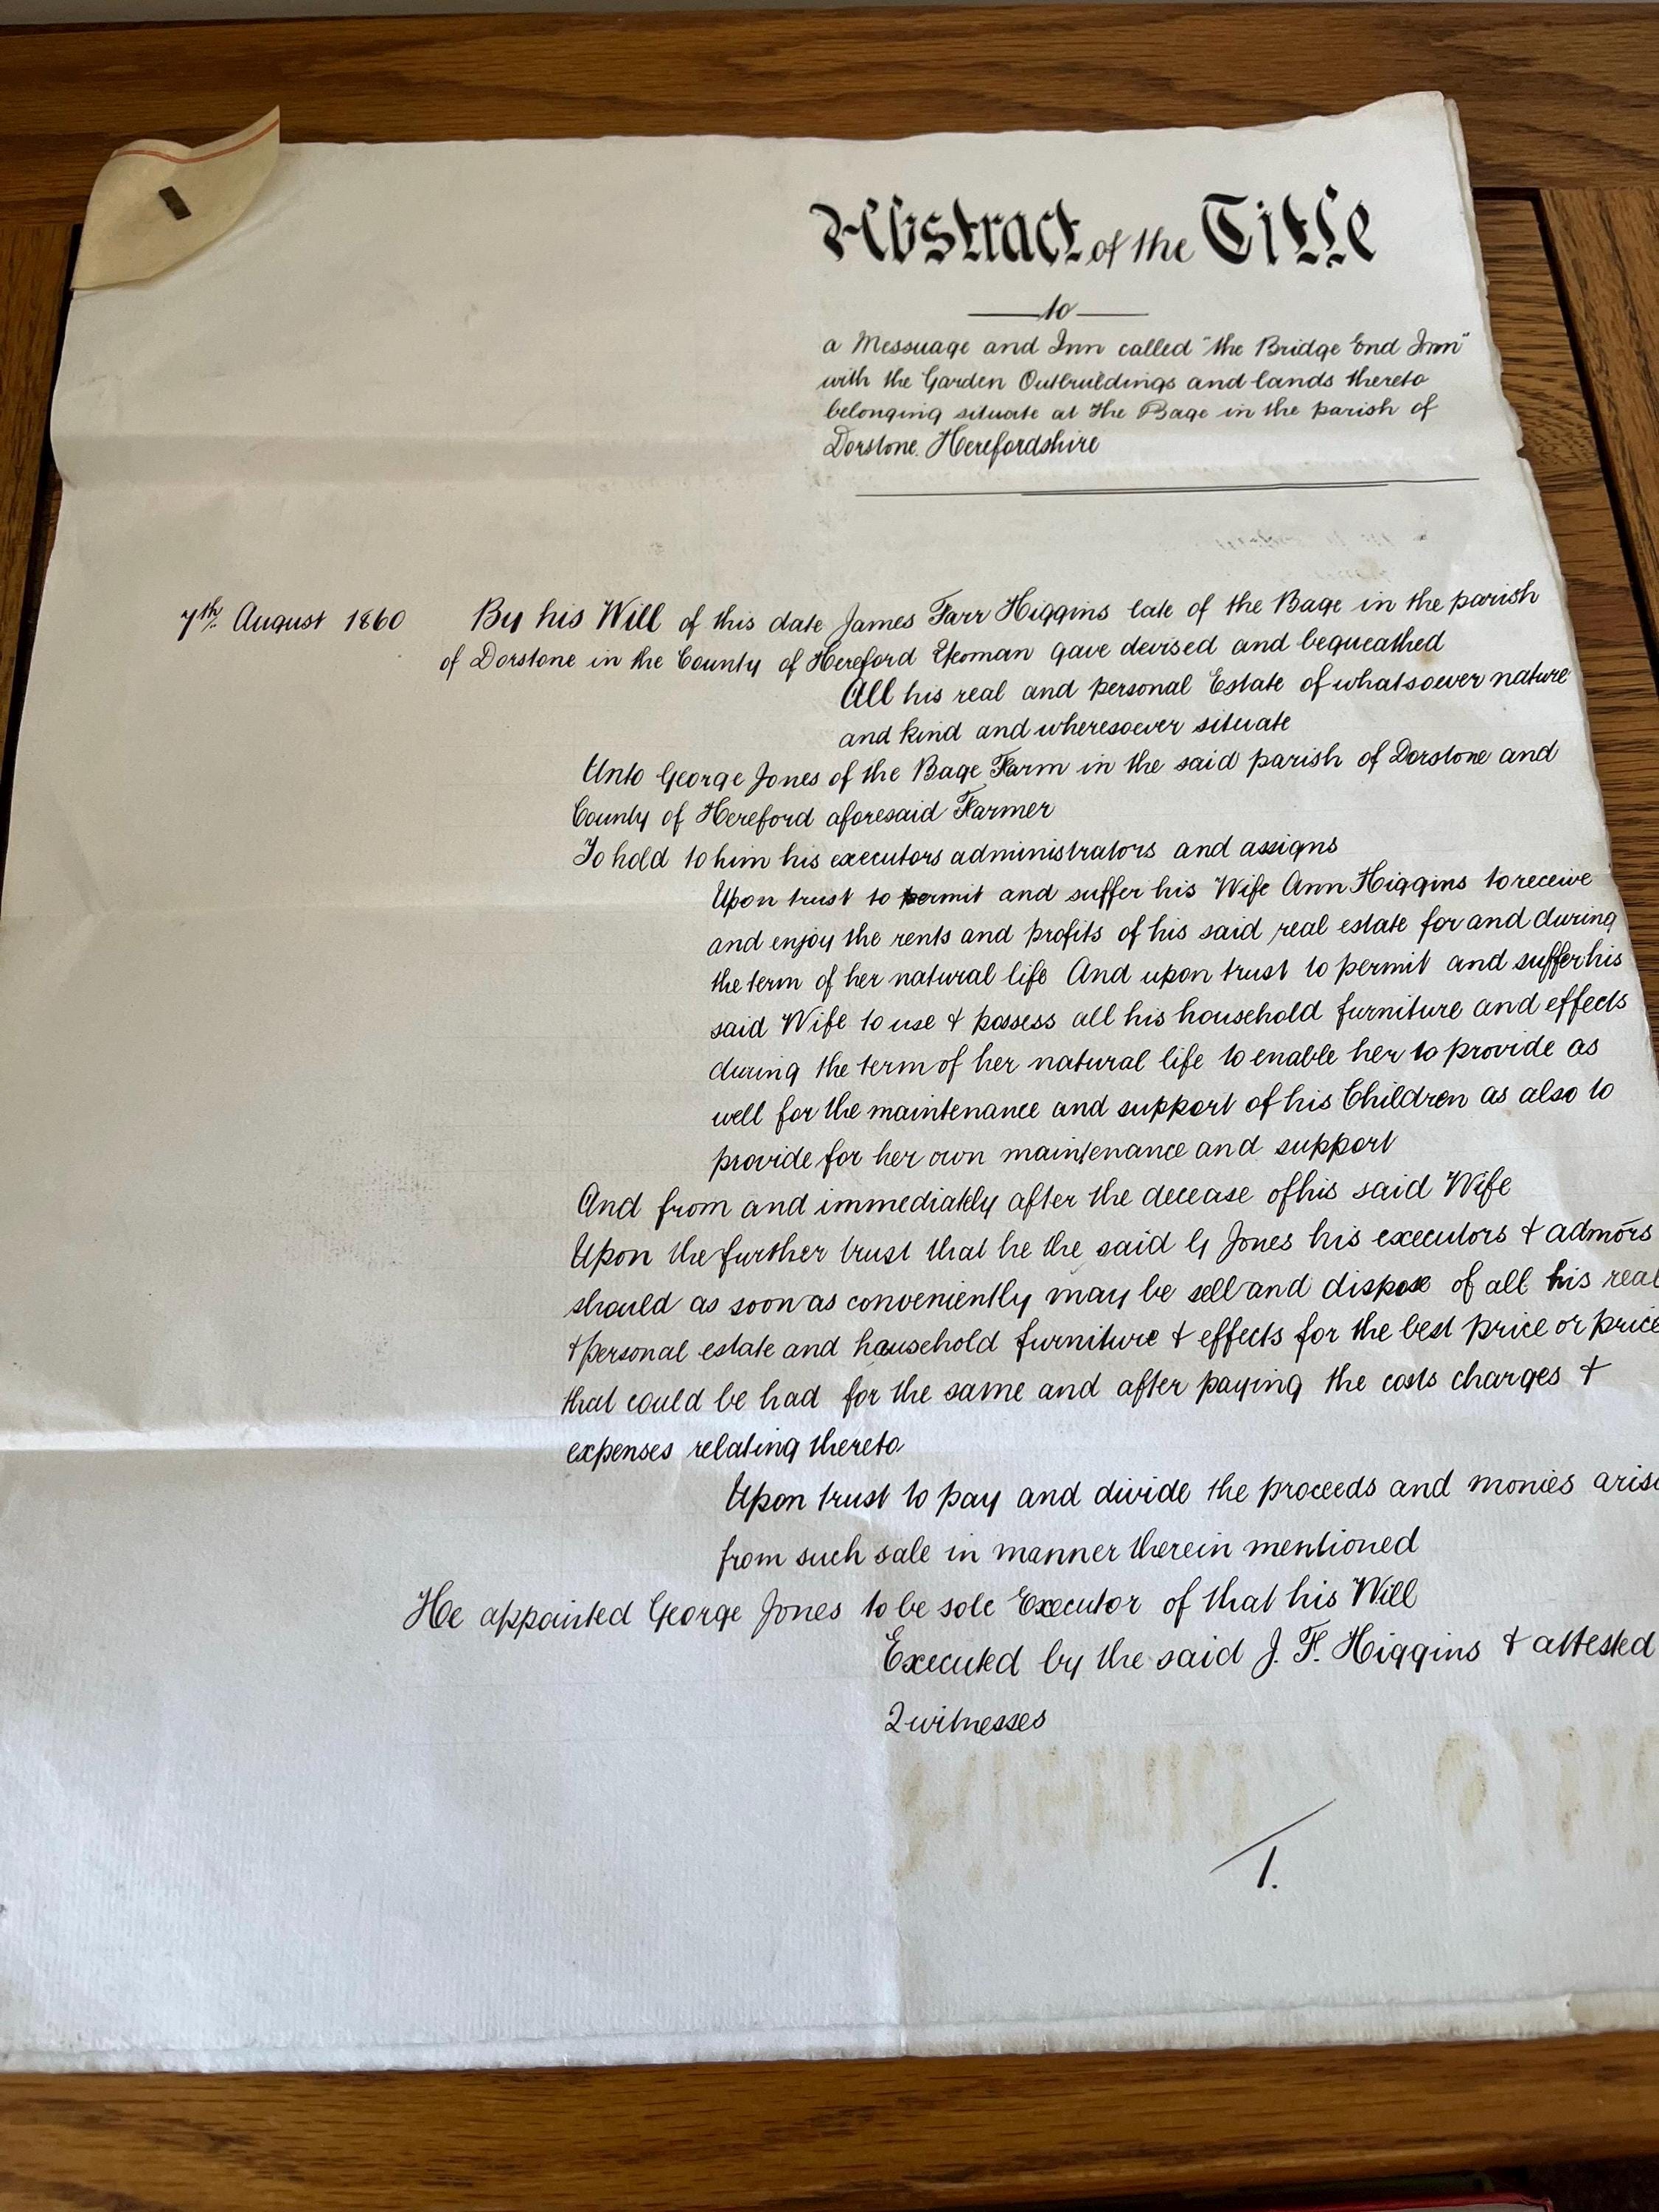 Abstract of the Title
to
a Messuage and Inn called "the Bridge End Inn"
with the Garden Outbuildings and lands thereto
belonging situate at the Bage in the parish of
Dorstone. Herefordshire
7th August 1860 By his Will of this date James Farr Higgins late of the Bage in the parish
of Dorstone in the County of Hereford Yeoman gave devised and bequeathed
All his real and personal Estate of whatsoever nature
and kind and wheresoever situate
Unto George Jones of the Bage Farm in the said parish of Dorstone and
County of Hereford aforesaid Farmer
To hold to him his executors administrators and assigns
Upon trust to permit and suffer his Wife Ann Higgins to receive
and enjoy the rents and profits of his said real estate for and during
the term of her natural life And upon trust to permit and suffer his
said Wife to use & possess all his household furniture and effects
during the term of her natural life to enable her to provide as
well for the maintenance and support of his Children as also to
provide for her own maintenance and support
And from and immediately after the decease of his said Wife
Upon the further trust that he the said G Jones his executors & admōrs
should as soon as conveniently may be sell and dispose of all his real
& personal estate and household furniture & effects for the best price or price
that could be had for the same and after paying the costs charges &
expenses relating thereto
Upon trust to pay and divide the proceeds and monies aris
from such sale in manner therein mentioned
He appointed George Jones to be sole Executor of that his Will
Executed by the said J. F. Higgins & attested
2 witnesses
1.